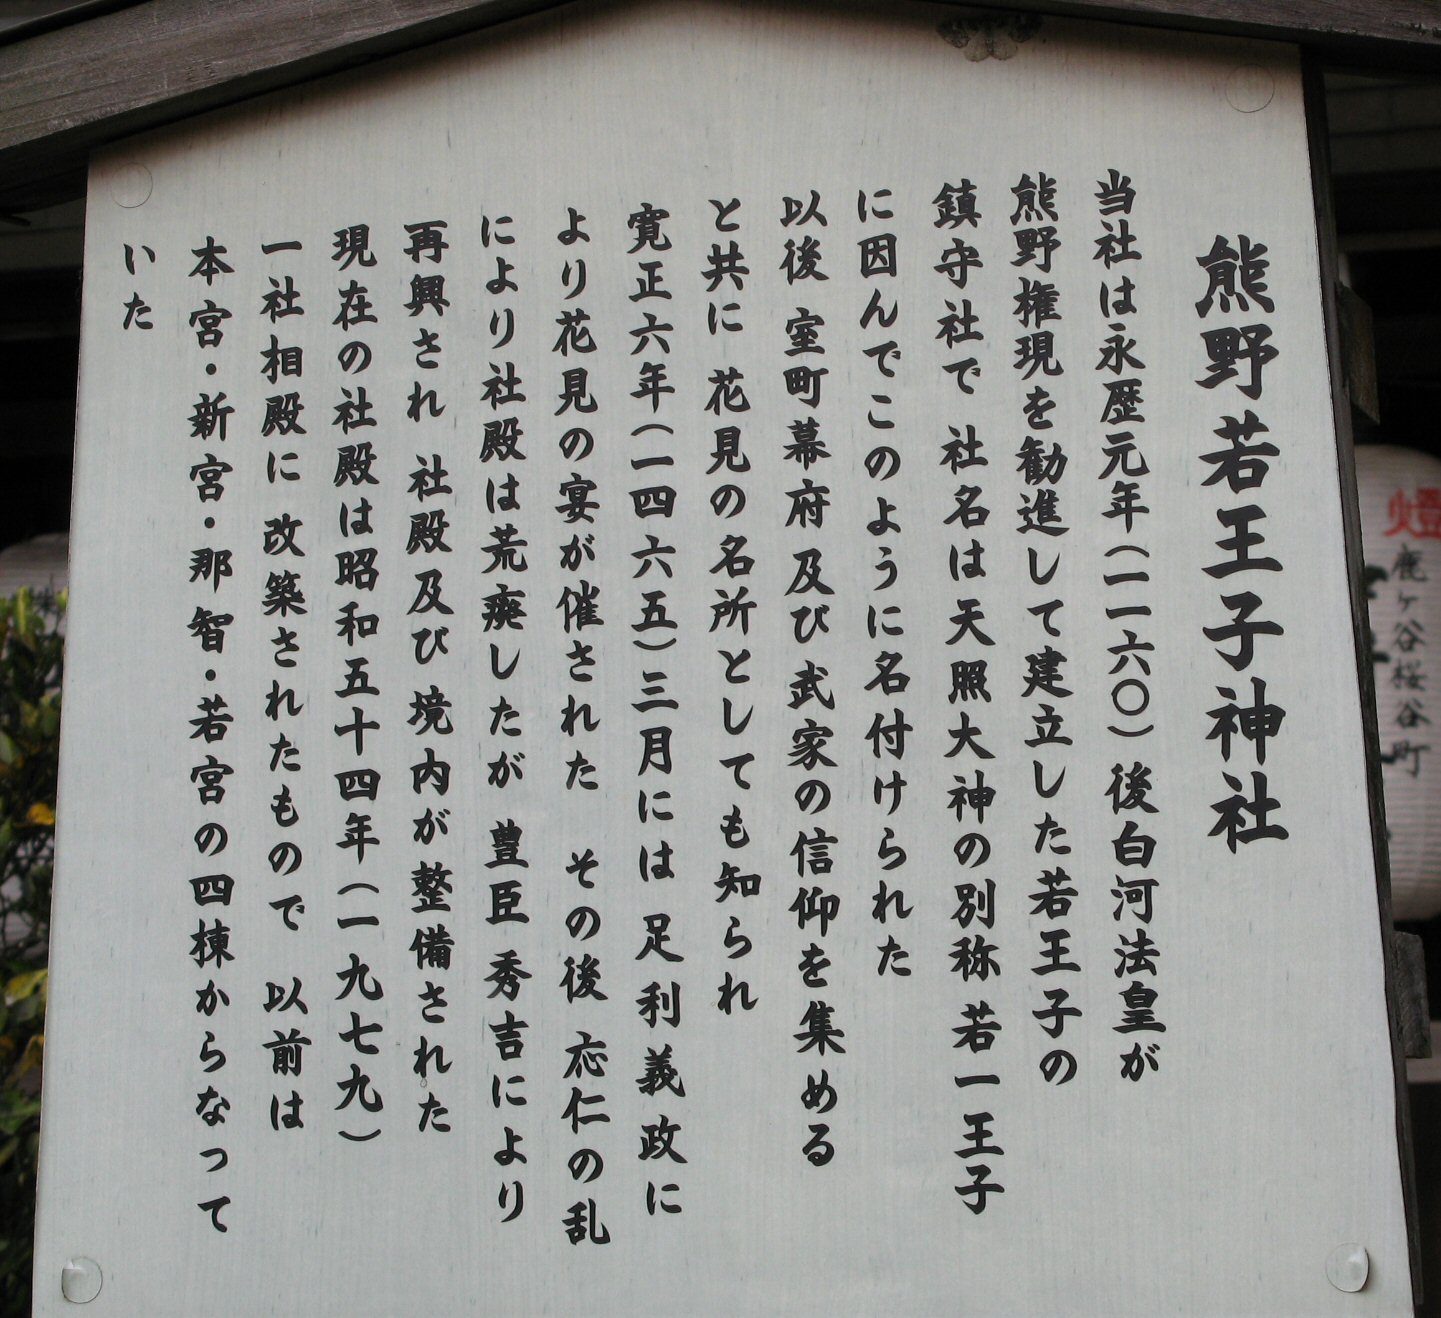 熊野若王子神社
当社は永歴元年（一一六〇）後白河法皇が
熊野権現を勧進して建立した若王子の
鎮守社で 社名は天照大神の別称 若一王子
に因んでこのように名付けられた
以後 室町幕府 及び 武家の信仰を集める
と共に 花見の名所としても知られ
寛正六年（一四六五）三月には 足利義政に
より花見の宴が催された その後 応仁の乱
により社殿は荒廃したが 豊臣秀吉により
再興され 社殿及び 境内が整備された
現在の社殿は昭和五十四年（一九七九）
一社相殿に 改築されたもので 以前は
本宮・新宮・那智・若宮の四棟からなって
いた
燈
鹿ヶ谷桜谷町